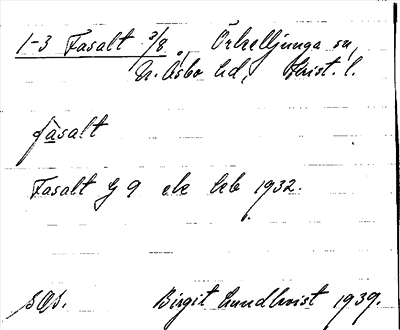 1-3 Fasalt 3/8 Örkelljunga sn,
N. Åsbo hd, Krist. l.
fasalt
Fasalt G 9 ek kb 1932.
sOs. Birgit Lundkvist 1939.